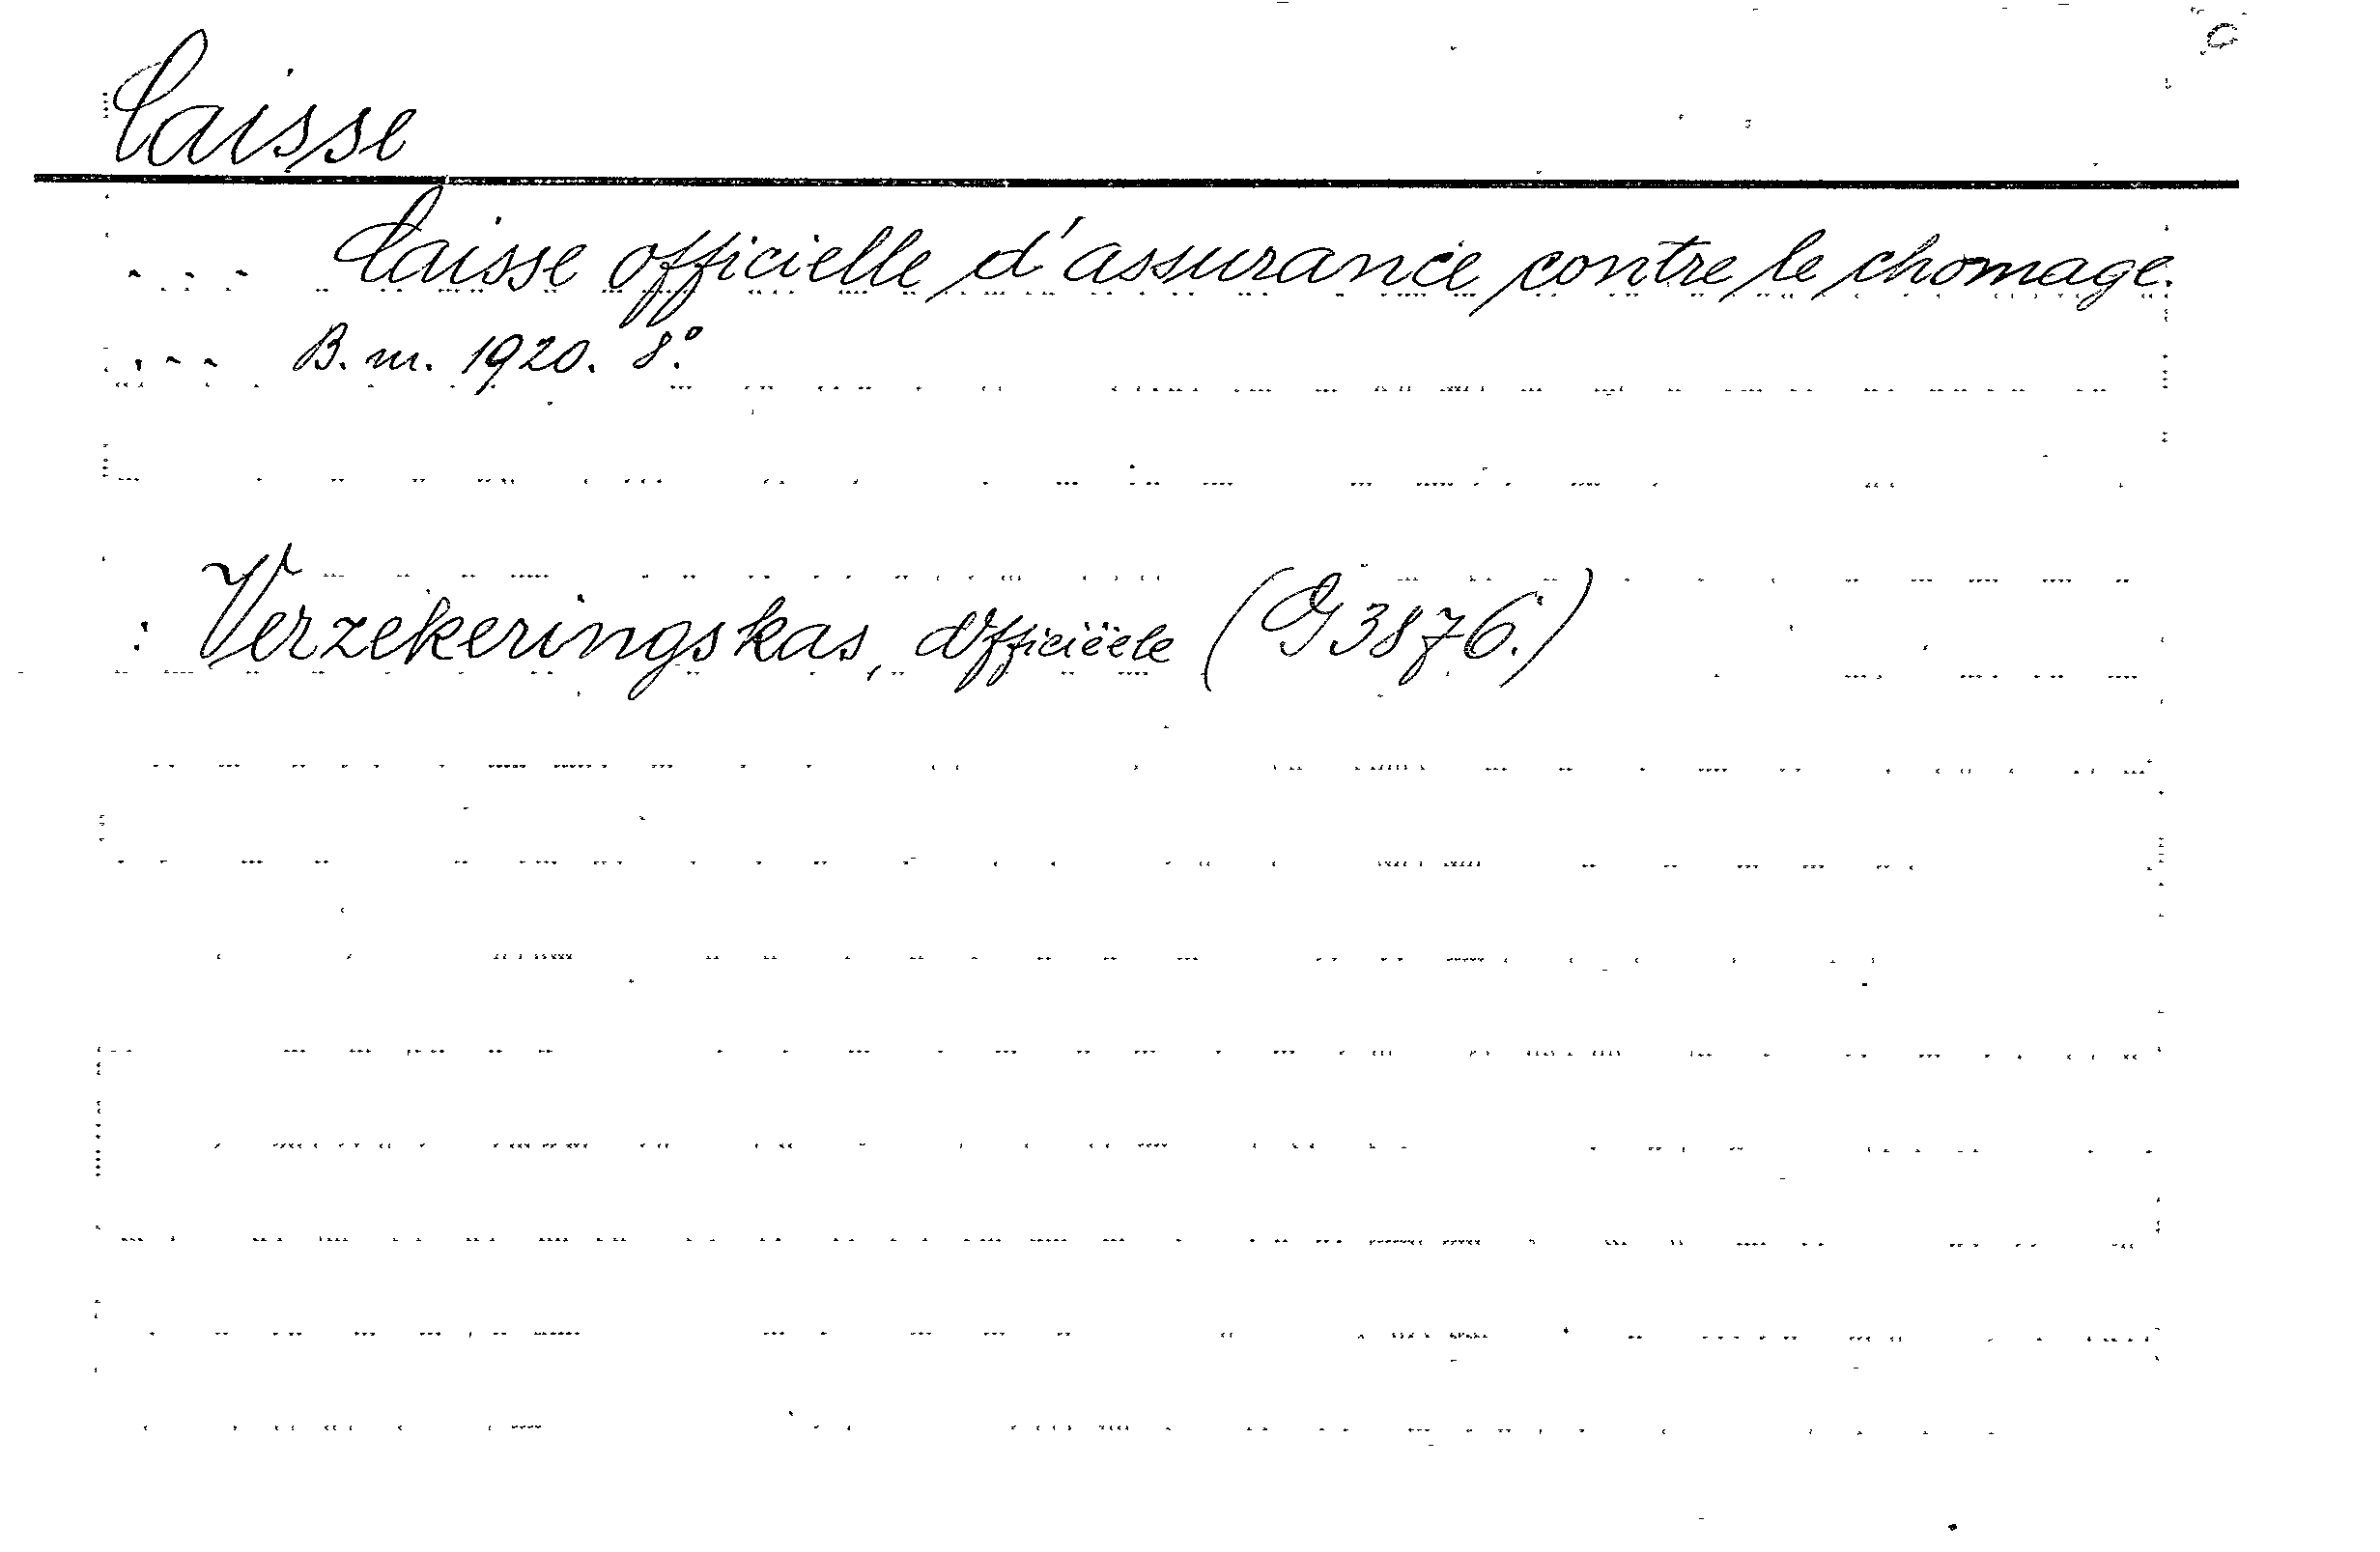 C
Caisse
- - - Caisse officielle d'assurance contre le chomage.
- - - B. m. 1920. 8°.
: Verzekeringskas, Officiëele (G 3876.)